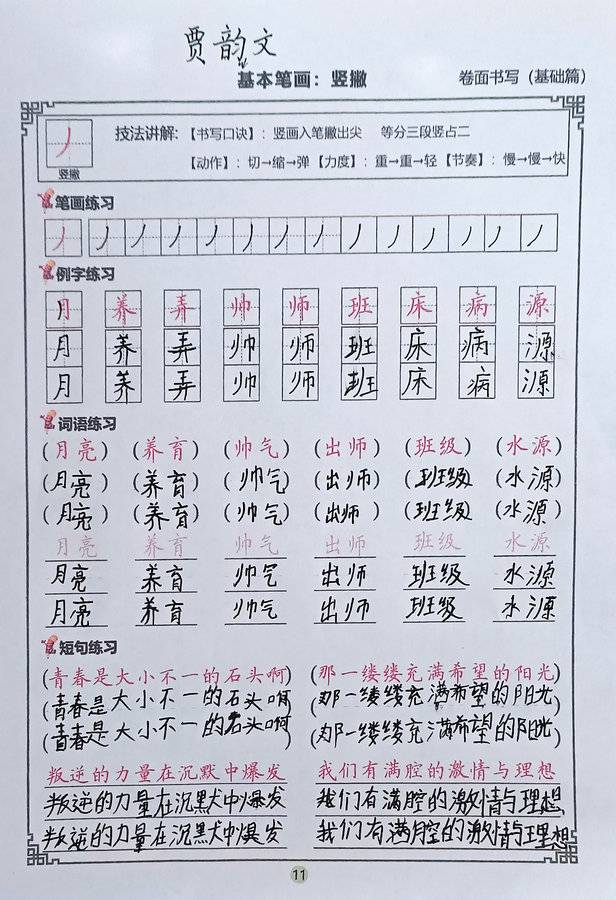 贾韵文
基本笔画：竖撇 卷面书写（基础篇）
竖撇 技法讲解:【书写口诀】：竖画入笔撇出尖 等分三段竖占二
【动作】：切→缩→弹【力度】：重→重→轻【节奏】：慢→慢→快
笔画练习
丿 丿 丿 丿 丿 丿 丿 丿 丿 丿 丿 丿 丿 丿
例字练习
月 养 弄 帅 师 班 床 病 源
月 养 弄 帅 师 班 床 病 源
月 养 弄 帅 师 班 床 病 源
词语练习
(月亮) (养育) (帅气) (出师) (班级) (水源)
(月亮) (养育) (帅气) (出师) (班级) (水源)
(月亮) (养育) (帅气) (出师) (班级) (水源)
月亮 养育 帅气 出师 班级 水源
月亮 养育 帅气 出师 班级 水源
月亮 养育 帅气 出师 班级 水源
短句练习
(青春是大小不一的石头啊) (那一缕缕充满希望的阳光)
(青春是大小不一的石头啊) (那一缕缕充满希望的阳光)
(青春是大小不一的石头啊) (那一缕缕充满希望的阳光)
叛逆的力量在沉默中爆发 我们有满腔的激情与理想
叛逆的力量在沉默中爆发 我们有满腔的激情与理想
叛逆的力量在沉默中爆发 我们有满腔的激情与理想
11